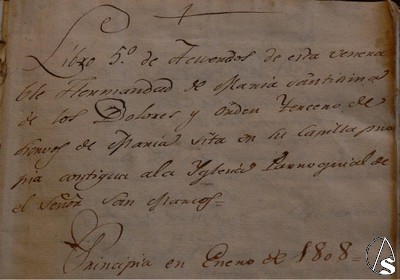 Libro 5.º de Acuerdos de esta venera
ble Hermandad de Maria Santisima
de los Dolores y Orden Tercero de
Siervos de Maria sita en su Capilla pro
pia contigua a la Yglesia Parroquial de
el Señor San Marcos=
Principia en Enero de 1808=